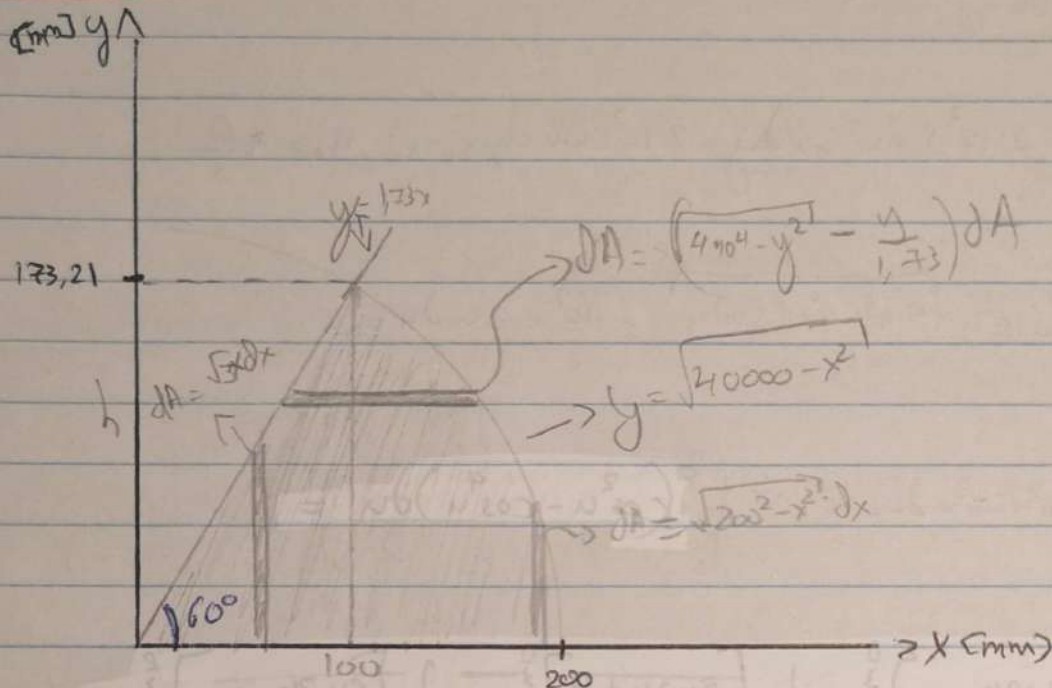 [mm] y
y=1,73x
173,21
dA = (√(4·10⁴ - y²) - y/1,73) dA
dA = √3x dx
h
y = √(40000 - x²)
dA = √(200² - x²) · dx
60°
100
200
x [mm]